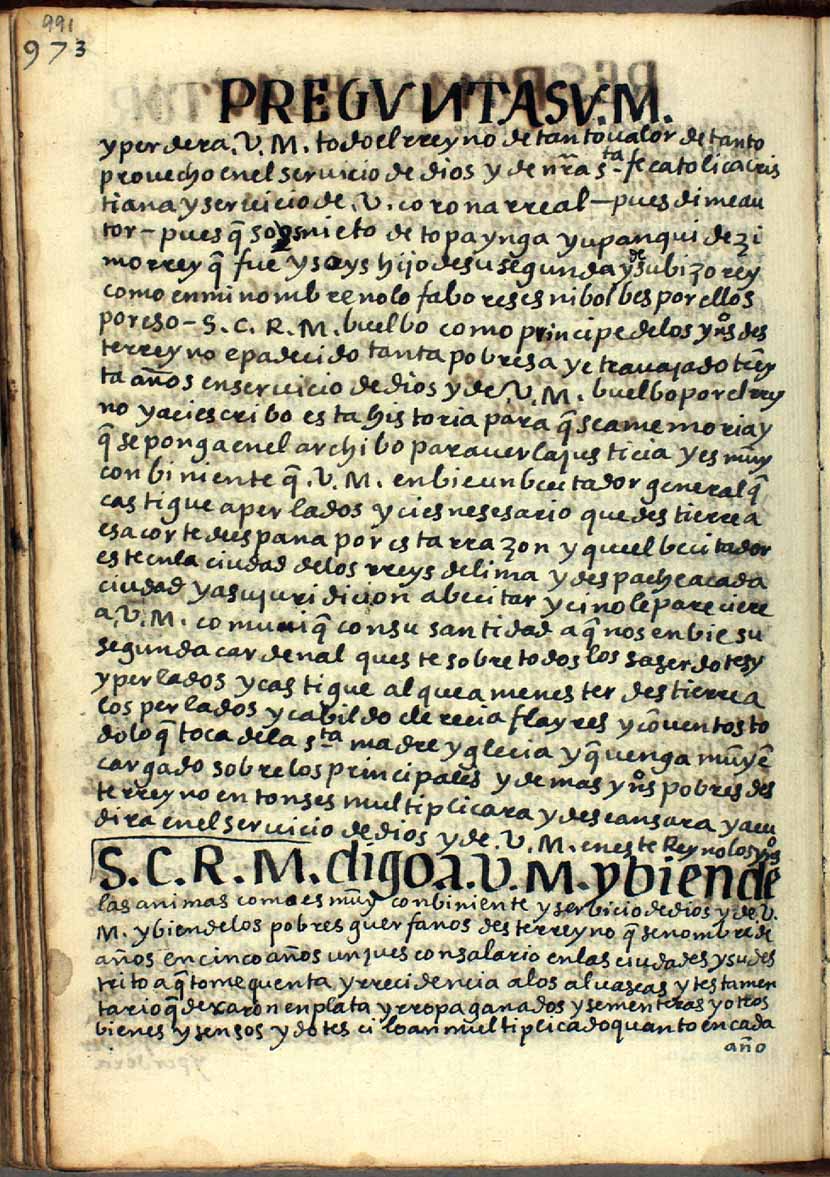 991
973
PREGVNTA SV. M.
y perdera. V. M. todo el rreyno de tanto ualor de tanto
prouecho en el seruicio de dios y de nr̃a s.ta fe catolica cris
tiana y seruicio de. V. corona rreal - pues dime au
tor - pues q̃ soys nieto de topa ynga yupanqui dezi
mo rrey q̃ fue y soys hijo de su segunda y de su bizorey
como en mi nombre no lo faboreseys ni bolbes por ellos
por eso - S. C. R. M. buelbo como prinsipe de los yn̊s des
te rreyno e padecido tanta pobresa y e trauajado treỹ
ta años en seruicio de dios y de. V. M. buelbo por el rrey
no y aci escribo esta historia para q̃ sea memoria y
q̃ se ponga en el archibo para uer la justicia y es mũy
conbiniente q̃. V. M. enbie un becitador general q̃
castigue a perlados y ci es nesesario que destierre a
esa corte de espana por esta rrazon y que el becitador
este en la ciudad de los rreys de lima y despache a cada
ciudad y a su juridicion a becitar y ci no le pareciere
a. V. M. comuniq̃ con su santidad a q̃ nos enbie su
segunda cardenal queste sobre todos los saserdotes y
y perlados y castigue al que a menester destierre a
los perlados y cabildo clerecia flayres y cõuentos to
do lo q̃ toca de la s.ta madre yglecia y q̃ uenga mũy ẽ
cargado sobre los principales y demas yn̊s pobres des
te rreyno entonses multiplicara y descansara y acu
dira en el seruicio de dios y de. V. M. en este Reyno los yn̊s
S. C. R. M. digo a. V. M. y bien de
las animas como es mũy conbiniente y serbicio de dios y de. V.
M. y bien de los pobres guerfanos deste rreyno q̃ se nombre de
años en cinco años un jues con salario en las ciudades y su des
trito a q̃ tome quenta y rrecidencia a los aluaseas y testamen
tario q̃ dexaron en plata y rropa ganados y sementeras y otros
bienes y sensos y dotes ci lo an multiplicado quanto en cada
año